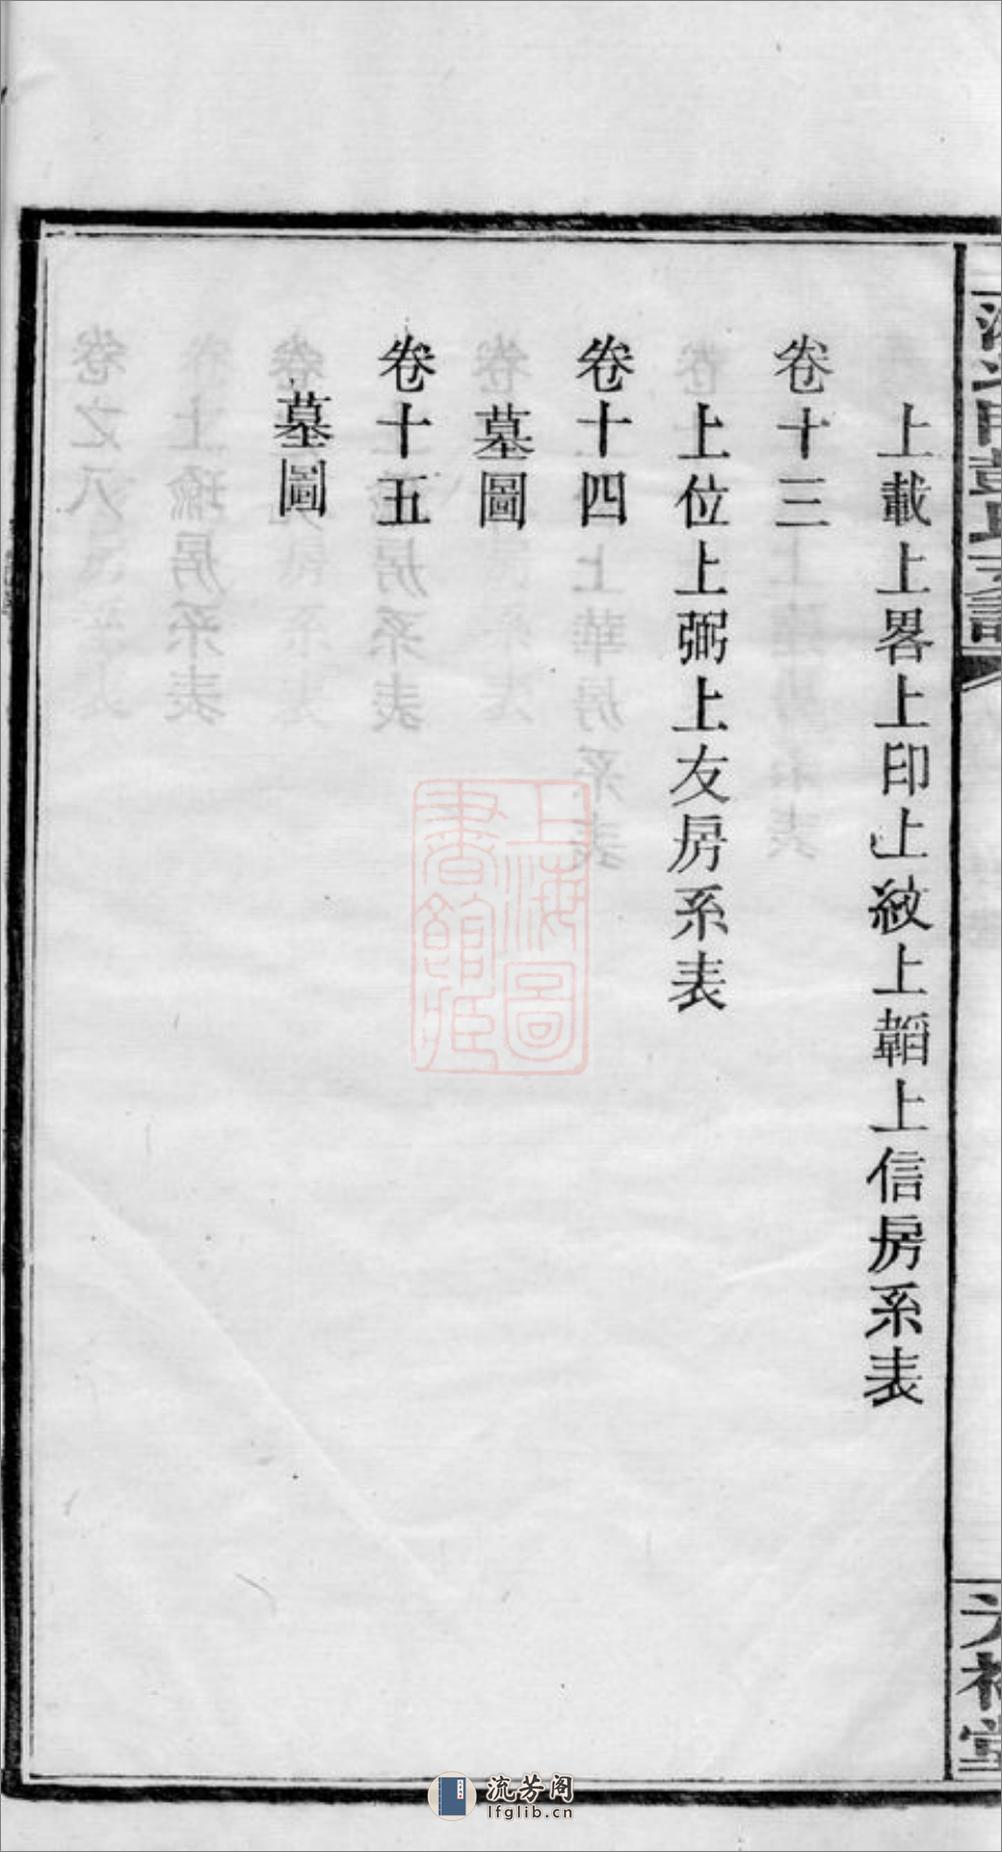 上載上畧上印上紋上韜上信房系表
卷十三
上位上弼上友房系表
卷十四
墓圖
卷十五
墓圖
上海圖
書館藏
流芳阁
lfglib.cn